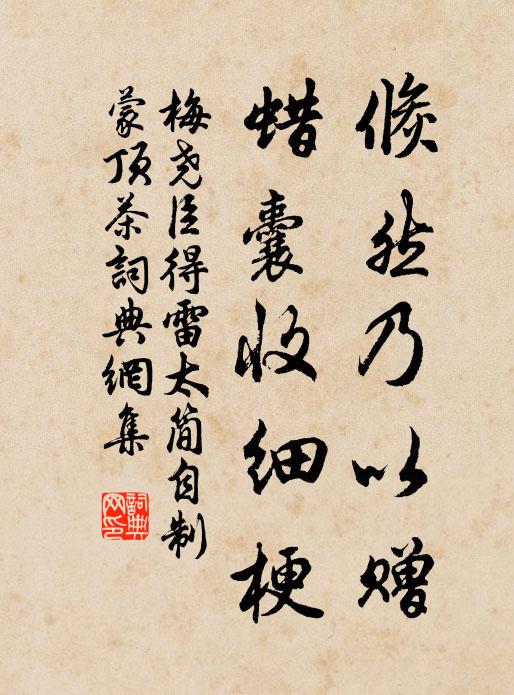 倐然乃以贈
蜡囊收细梗
梅尧臣得雷太简自制
蒙顶茶詞典網集
詞典网印